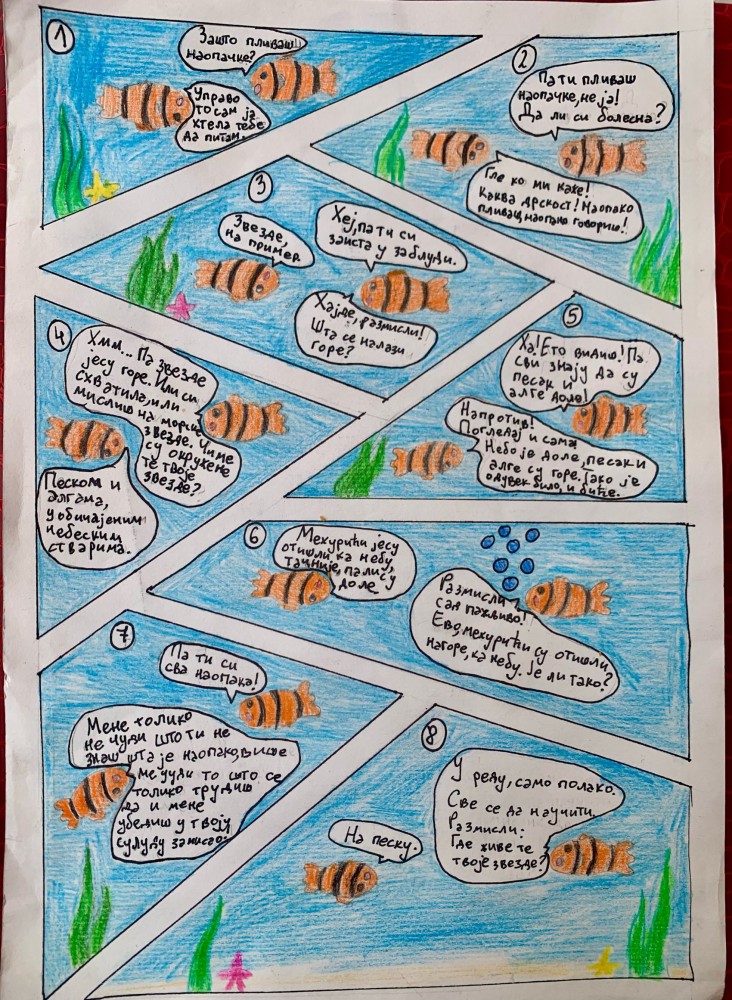 1
Зашто пливаш
наопачке?
Управо
то сам ја
хтела тебе
да питам.
2
Па ти пливаш
наопачке, не ја!
Да ли си болесна?
Гле ко ми каже!
Каква дрскост! Наопако
пливаш, наопако говориш!
3
Хеј, па ти си
заиста у заблуди.
Звезде,
на пример
Хајде, размисли!
Шта се налази
горе?
4
Хмм... Па звезде
јесу горе. Или си
схватила, или
мислиш на морске
звезде. Чиме
су окружене
те твоје
звезде?
Песком и
алгама,
уобичајеним
небеским
стварима.
5
Ха! Ето видиш! Па
сви знају да су
песак и
алге доле!
Напротив!
Погледај и сама!
Небо је доле, песак и
алге су горе. Тако је
одувек било, и биће.
6
Мехурићи јесу
отишли ка небу,
тачније, пали су
доле
Размисли
сад пажљиво!
Ево, мехурићи су отишли
нагоре, ка небу. Је ли тако?
7
Па ти си
сва наопака!
Мене толико
не чуди што ти не
знаш шта је наопако, више
ме чуди то што се
толико трудиш
да и мене
убедиш у твоју
сулуду замисао.
8
У реду, само полако.
Све се да научити.
Размисли:
Где живе те
твоје звезде?
На песку.